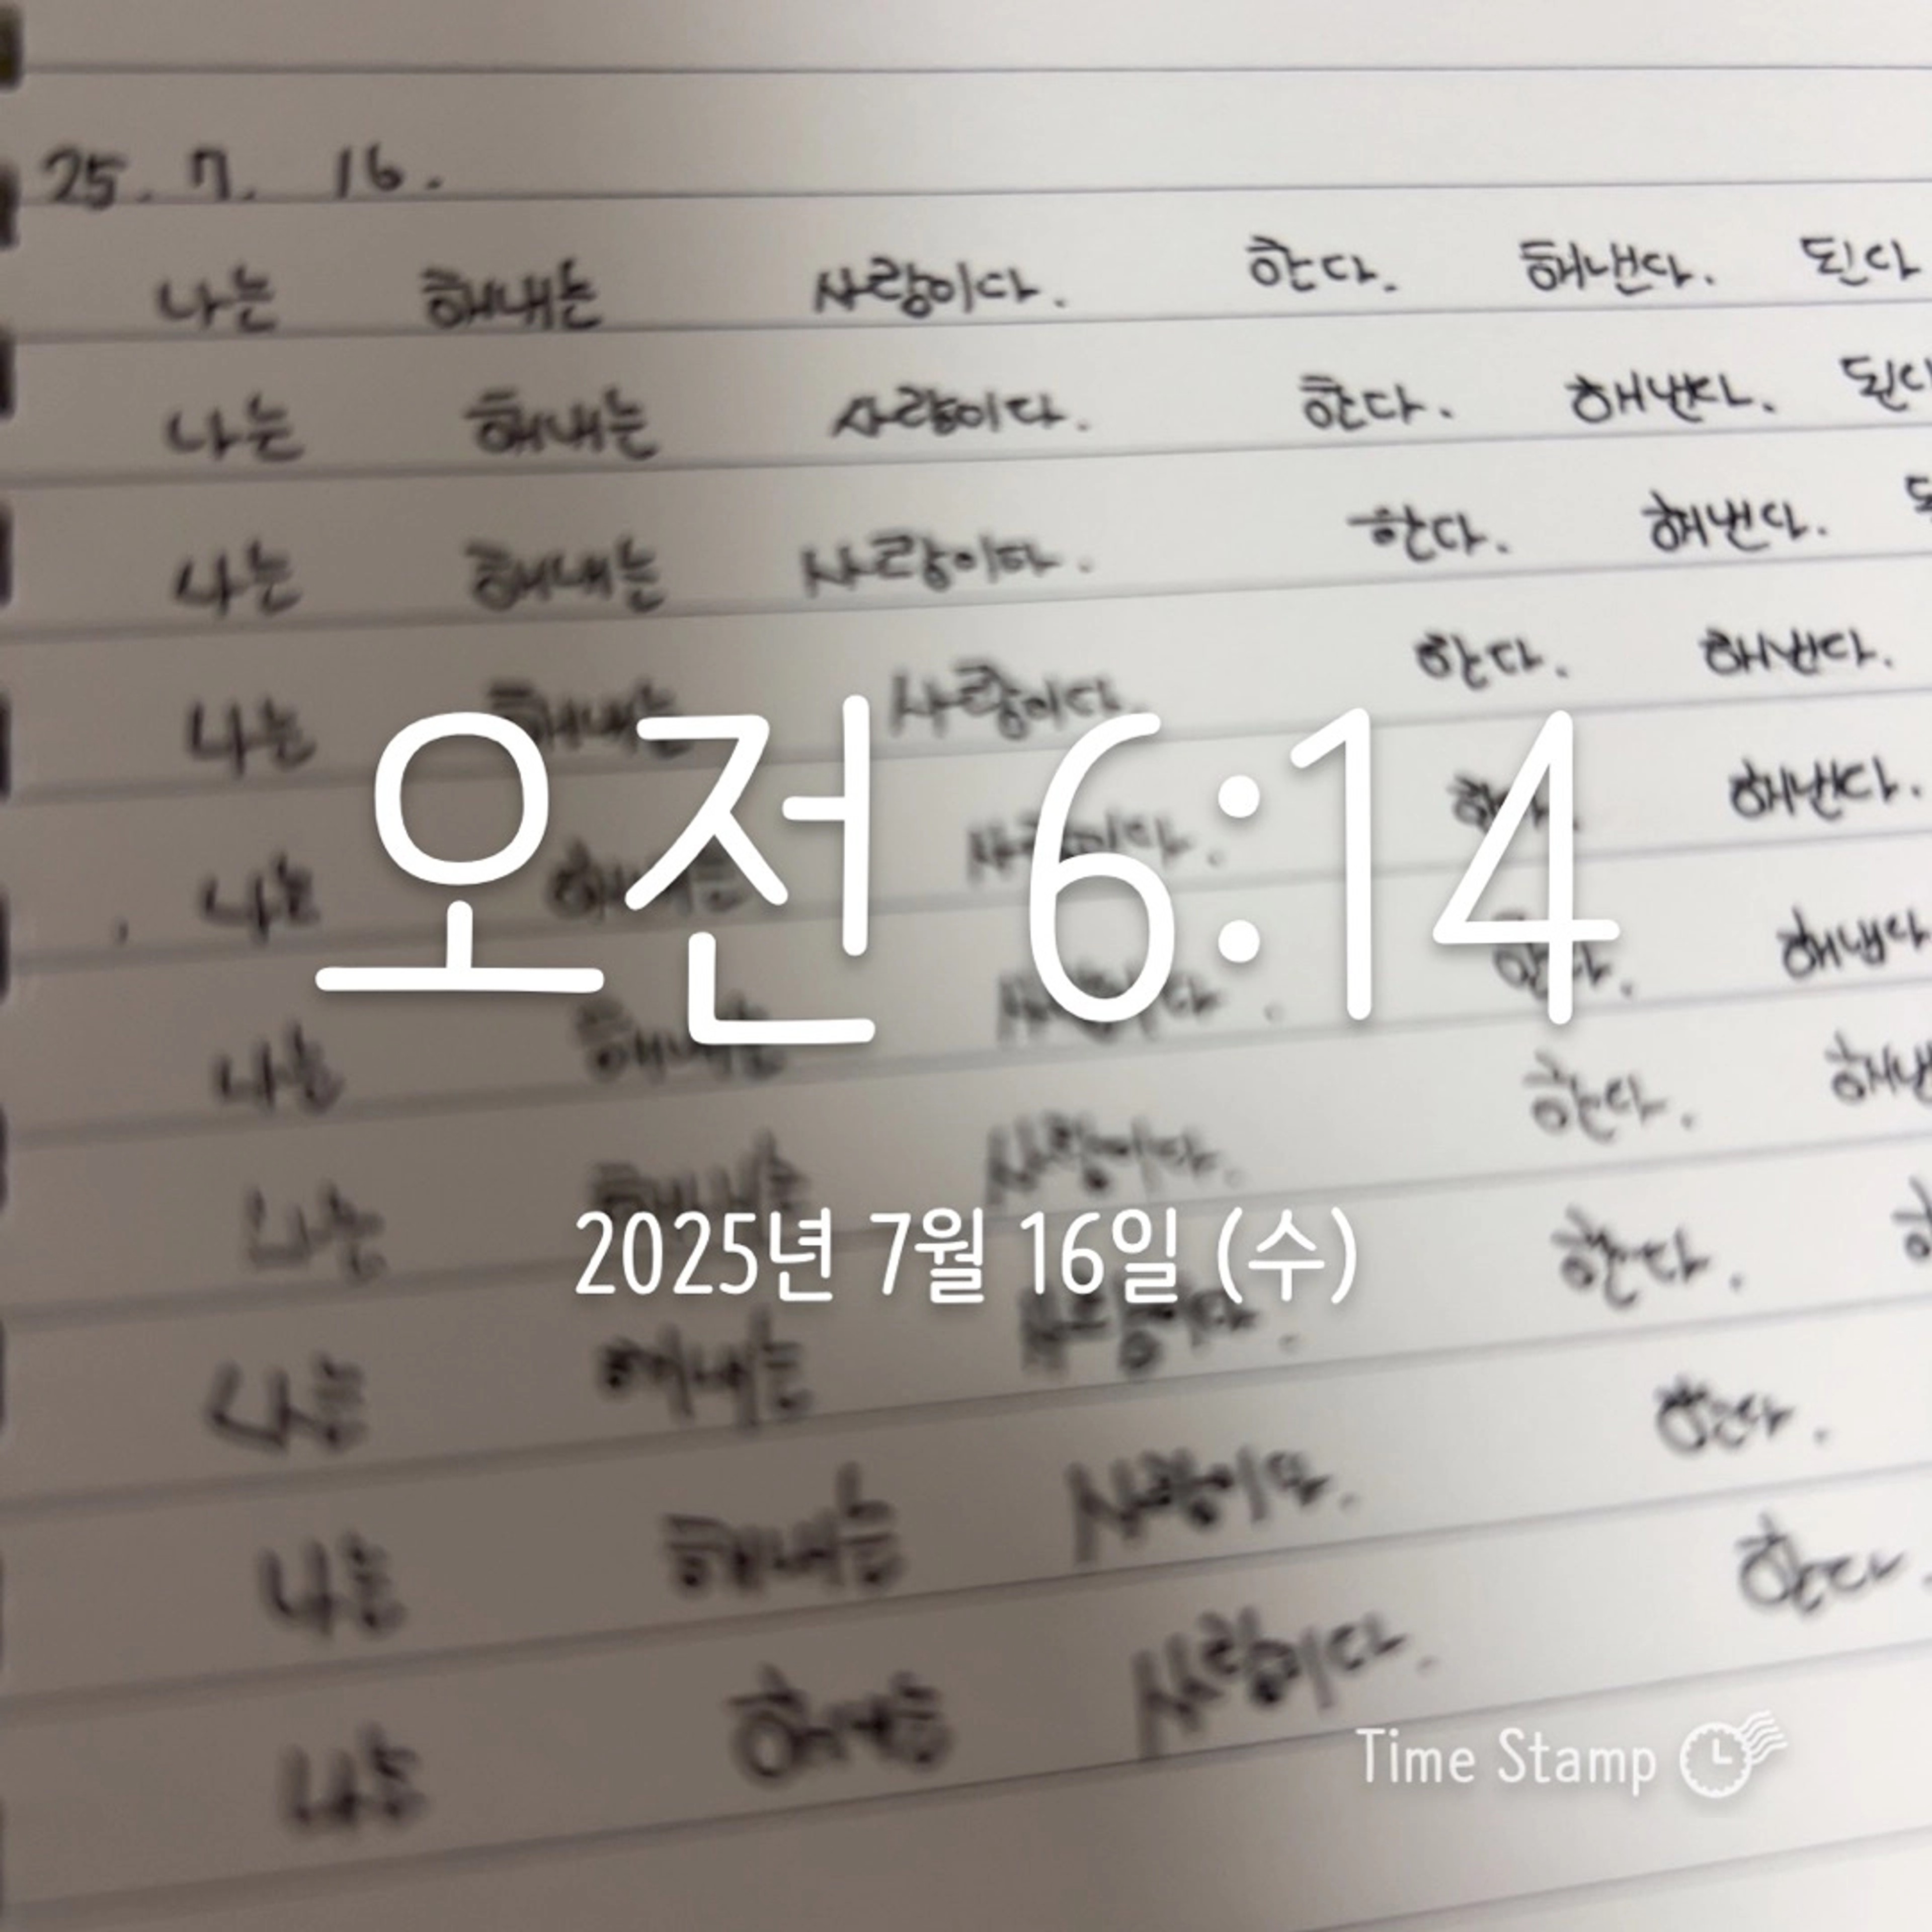 25. 7. 16.
나는 해내는 사람이다. 한다. 해낸다. 된다
나는 해내는 사람이다. 한다. 해낸다. 된다
나는 해내는 사람이다. 한다. 해낸다.
나는 해내는 사람이다. 한다. 해낸다.
오전 6:14
나는 해내는 사람이다. 한다. 해낸다.
나는 해내는 사람이다. 한다. 해낸다
나는 해내는 사람이다. 한다. 해낸
2025년 7월 16일 (수)
나는 해내는 사람이다. 한다.
나는 해내는 사람이다. 한다.
나는 해내는 사람이다. 한다.
Time Stamp